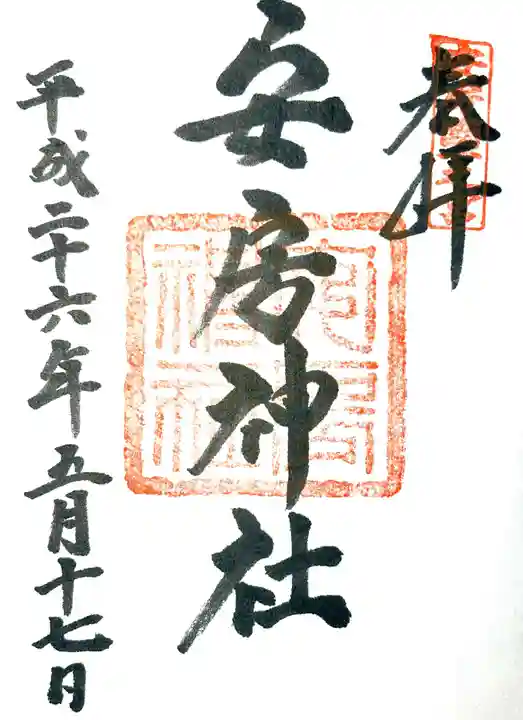 奉拝
安房神社
平成二十六年五月十七日